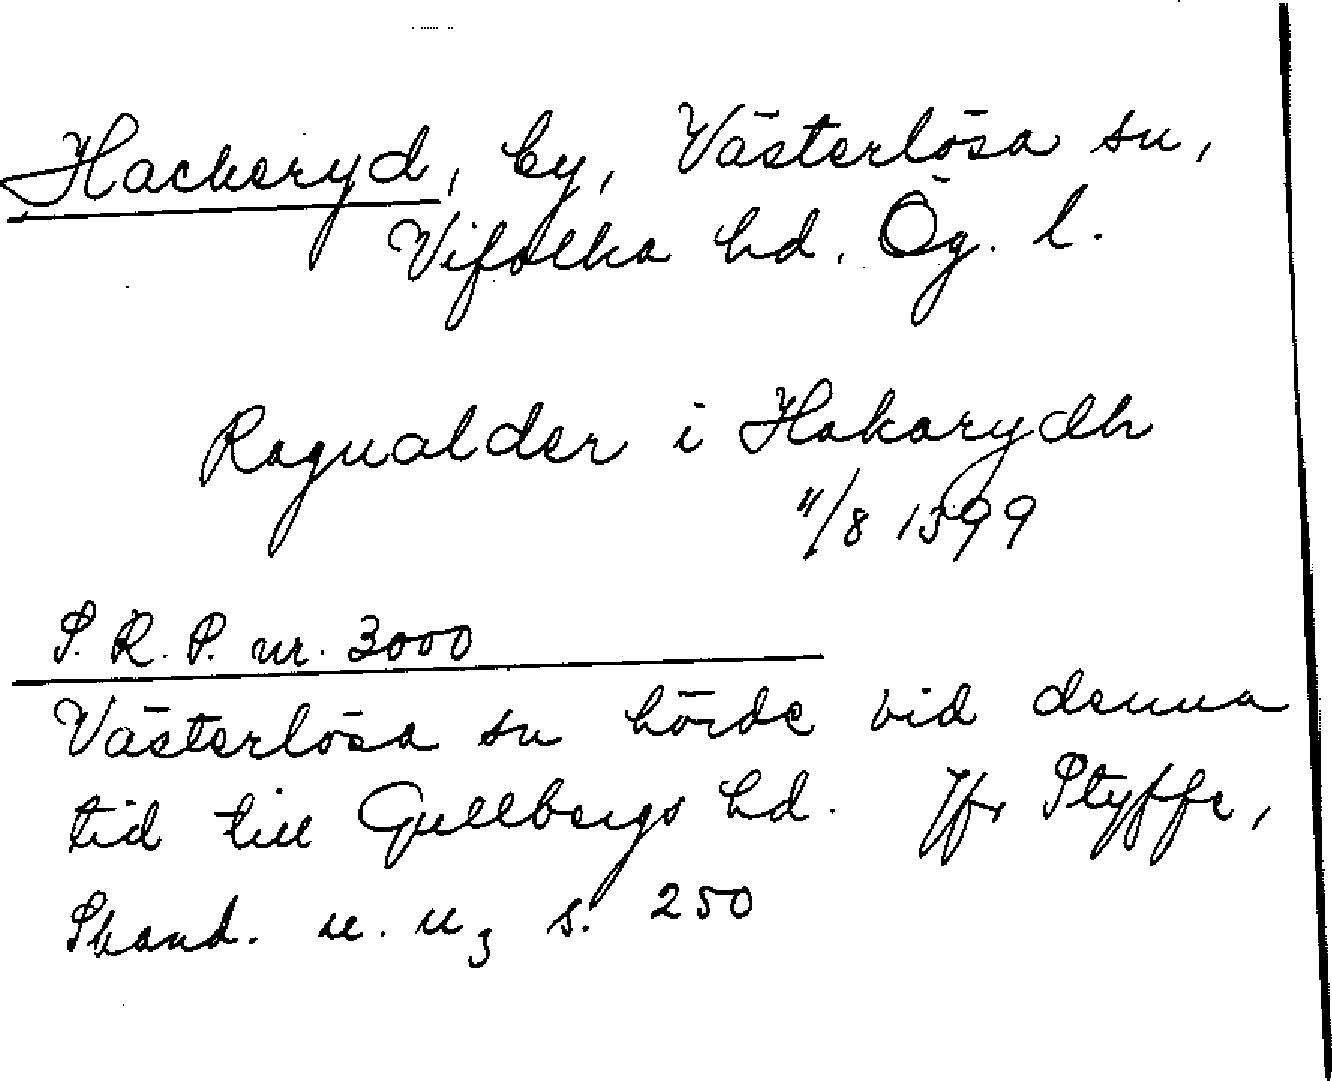 Hackeryd, by, Västerlösa sn,
Vifolka hd. Ög. l.
Ragualder i Hakarydh
11/8 1399
S. R. P. nr. 3000
Västerlösa sn hörde vid denna
tid till Gullbergs hd. Jfr Styffe,
Skand. u. u3 s. 250